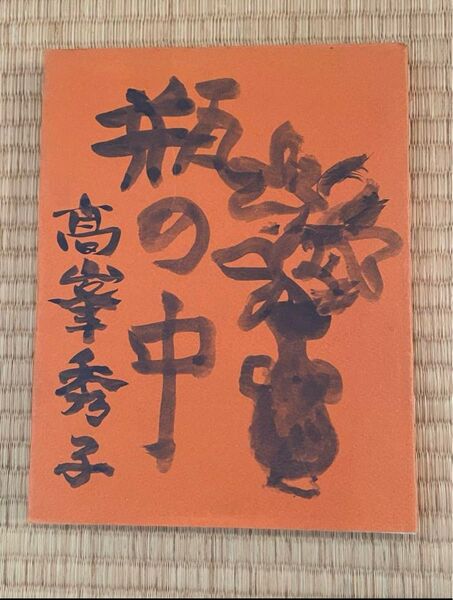 瓶の中
髙峯秀子